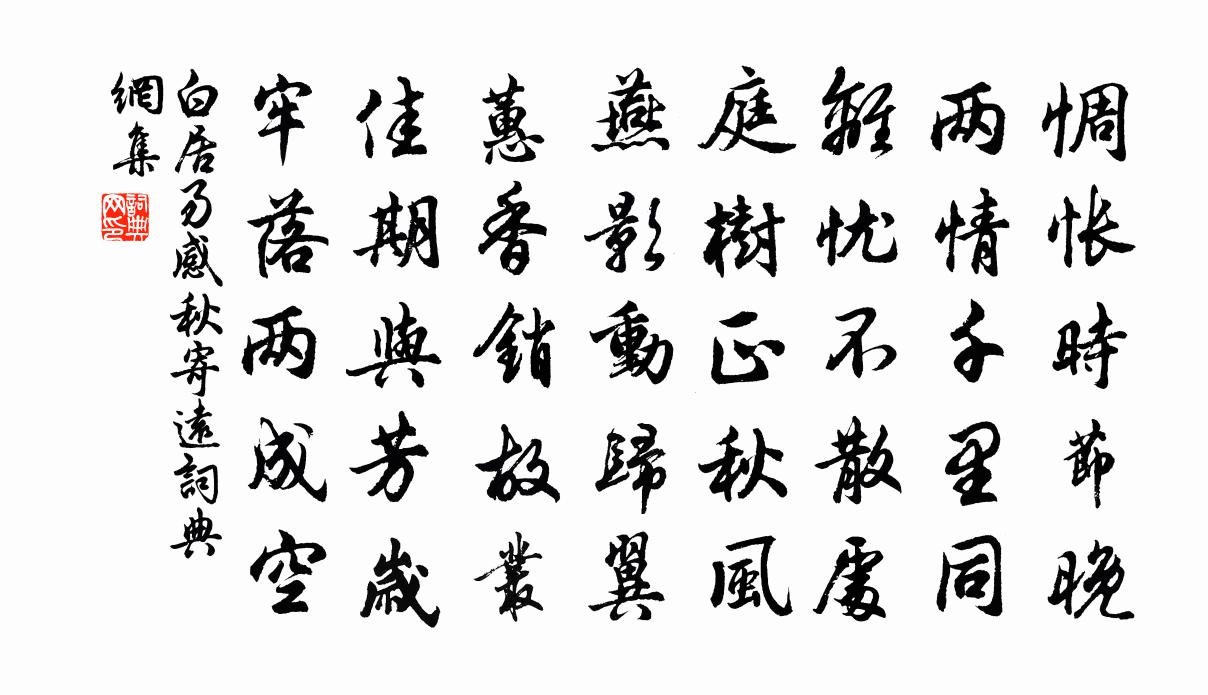 惆怅時節晚
两情千里同
離忧不散處
庭樹正秋風
燕影動歸翼
蕙香銷故叢
佳期與芳歲
牢落两成空
白居易感秋寄遠詞典
網集
詞典
网印